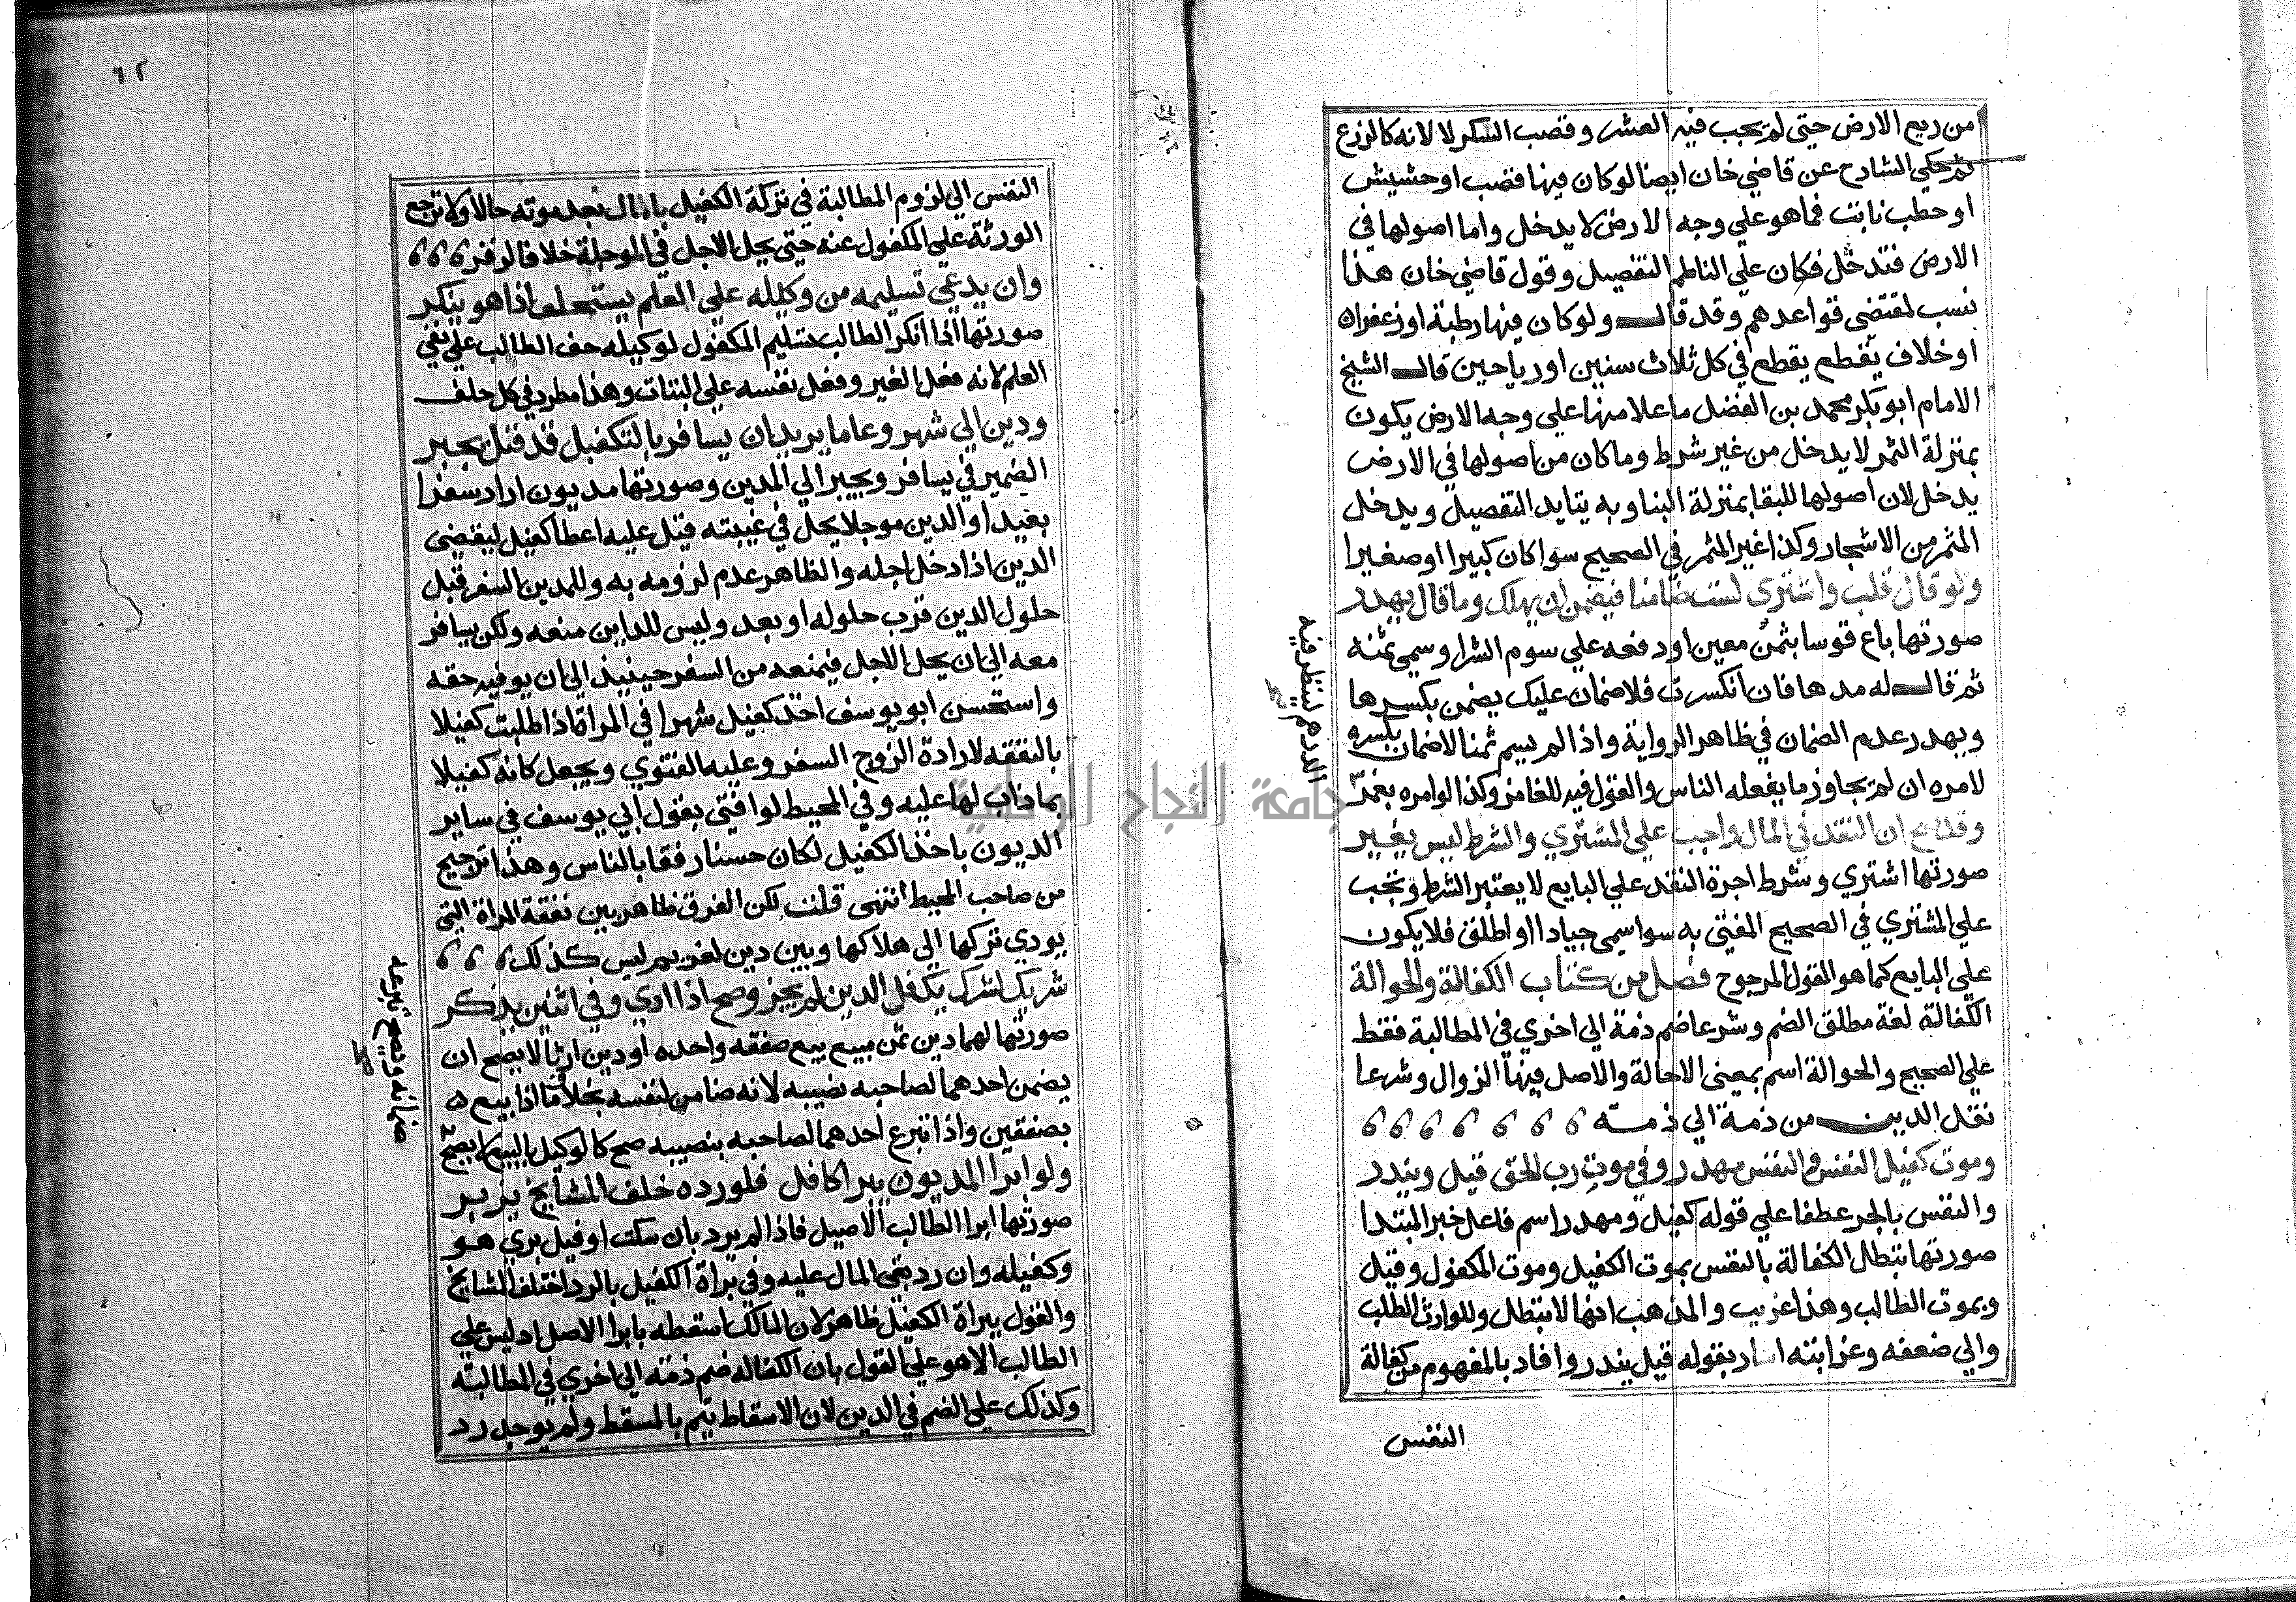 من ريع الارض حتى لم يجب فيه العشر وقصب السكر لا لانه كالزرع
ثم حكي الشارح عن قاضي خان ايضا لو كان فيها قصب او حشيش
او حطب نابت فما هو علي وجه الارض لا يدخل واما اصولها في
الارض فتدخل فكان علي الناظم التفصيل وقول قاضي خان هذا
نسب لمقتضى قواعدهم وقد قال ولو كان فيها رطبة او زعفران
او خلاف يقطع يقطع في كل ثلاث سنين او رياحين قال الشيخ
الامام ابو بكر محمد بن الفضل ما علا منها علي وجه الارض يكون
بمنزلة الثمر لا يدخل من غير شرط وما كان من اصولها في الارض
يدخل لان اصولها للبقا بمنزلة البنا وبه يتايد التفصيل ويدخل
المثمر من الاشجار وكذا غير المثمر في الصحيح سوا كان كبيرا او صغيرا
ولو قال قلب واشتري لست ضامنا فيضمن ان يهلك وما قال يهدر
صورتها باع قوسا بثمن معين او دفعه علي سوم الشرا وسمي ثمنه
ثم قال له مدها فان انكسرت فلا ضمان عليك يضمن بكسرها
ويهدر عدم الضمان في ظاهر الرواية واذا لم يسم ثمنا لا ضمان بكسره
لامره ان لم يجاوز ما يفعله الناس والقول فيه للغامز وكذا لو امره بغمز
الدرهم لينظر فيه
صح
ان النقد في المال واجب علي المشتري والشرط ليس يغير
صورتها اشتري وشرط اجرة النقد علي البايع لا يعتبر الشرط وتجب
علي المشتري في الصحيح المفتى به سوا سمى جيادا او اطلق فلا يكون
علي البايع كما هو القول المرجوح فصل من كتاب الكفالة والحوالة
الكفالة لغة مطلق الضم وشرعا ضم ذمة الي اخري في المطالبة فقط
علي الصحيح والحوالة اسم بمعنى الاحالة والاصل فيها الزوال وشرعا
نقل الدين من ذمة الي ذمته
وموت كفيل النفس والنفس مهدر وفي موت رب الحق قيل ويندر
والنفس بالجر عطفا علي قوله كفيل ومهدر اسم فاعل خبر المبتدا
صورتها تبطل الكفالة بالنفس بموت الكفيل وموت المكفول وقيل
وبموت الطالب وهذا غريب والمذهب انها لا تبطل وللوارث الطلب
والي ضعفه وغرابته اشار بقوله قيل يندر وافاد بالمفهوم من كفالة
النفس
٦٢
النفس الي لزوم المطالبة في تركة الكفيل بالمال بعد موته حالا ولا ترجع
الورثة علي المكفول عنه حتى يحل الاجل في الموجلة خلافا لزفر
وان يدعي تسليمه من وكيله علي العلم يستحلف اذا هو ينكر
صورتها اذا انكر الطالب تسليم المكفول لوكيله حلف الطالب علي نفي
العلم لانه فعل الغير وفعل نفسه علي البتات وهذا مطرد في كل حلف
ودين الي شهر وعاما يريد ان يسافر بالتكفيل قد قيل يجبر
الضمير في يسافر ويجبر الي المدين وصورتها مديون اراد سفرا
بعيدا والدين موجلا يحل في غيبته قيل عليه اعطا كفيل ليقضي
الدين اذا دخل اجله والظاهر عدم لزومه به وللمدين السفر قبل
حلول الدين قرب حلوله او بعد وليس للداين منعه ولكن يسافر
معه الي ان يحل الاجل فيمنعه من السفر حينيذ الي ان يوفيه حقه
واستحسن ابو يوسف اخذ كفيل شهرا في المراة اذا طلبت كفيلا
بالنفقه لارادة الزوج السفر وعليه الفتوي ويجعل كانه كفيلا
بما ذاب لها عليه وفي المحيط لو افتى بقول ابي يوسف في ساير
الديون باخذ الكفيل لكان حسنا رفقا بالناس وهذا ترجيح
من صاحب المحيط انتهى قلت لكن الفرق ظاهر بين نفقة المراة التي
يودي تركها الي هلاكها وبين دين لغريم ليس كذلك
شريك لشرك يكفل الدين لم يجز وصح اذا ادي وفي اثنين يذكر
صورتها لهما دين ثمن مبيع بيع صفقه واحده او دين ارثا لا يصح ان
يضمن احدهما لصاحبه نصيبه لانه ضامن لنفسه بخلاف ما اذا بيع
بصفقتين واذا تبرع احدهما لصاحبه بنصيبه صح كالوكيل بالبيع لا يصح
ضمانه ويصح تبرعه
صح
ولو ابرا المديون يبرا كافل فلو رده خلف المشايخ يزبر
صورتها ابرا الطالب الاصيل فاذا لم يرد بان سكت او قيل بري هو
وكفيله وان رد بقي المال عليه وفي براة الكفيل بالرد اختلف المشايخ
والقول ببراة الكفيل ظاهر لان المالك اسقطه بابرا الاصل اذ ليس علي
الطالب الا هو علي القول بان الكفاله ضم ذمته الي اخري في المطالبته
وكذلك علي الضم في الدين لان الاسقاط يتم بالمسقط ولم يوجد رد
جامعة النجاح الوطنية